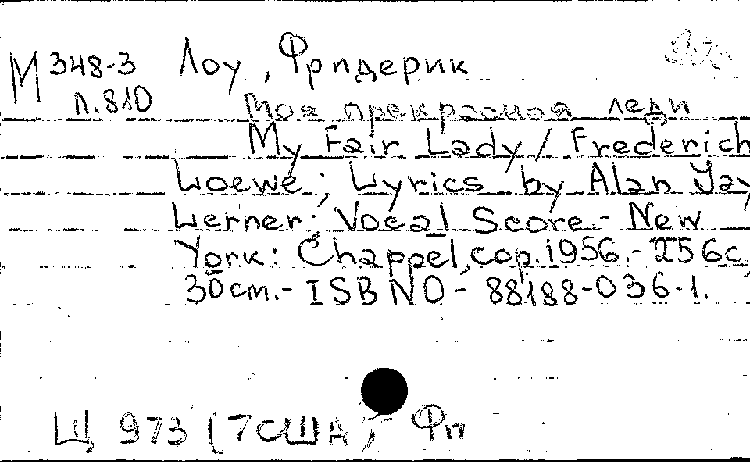 М 348-3 Лоу, Фридерик
Л.810
Моя прекрасная леди
My Fair Lady / Frederich
Loewe; Lyrics by Alan Jay
Lerner; Vocal Score - New
York: Chappel, cop. 1956.- 256с
30cm.- ISBN 0 - 88188-036-1.
Щ 973 (7США) Фп